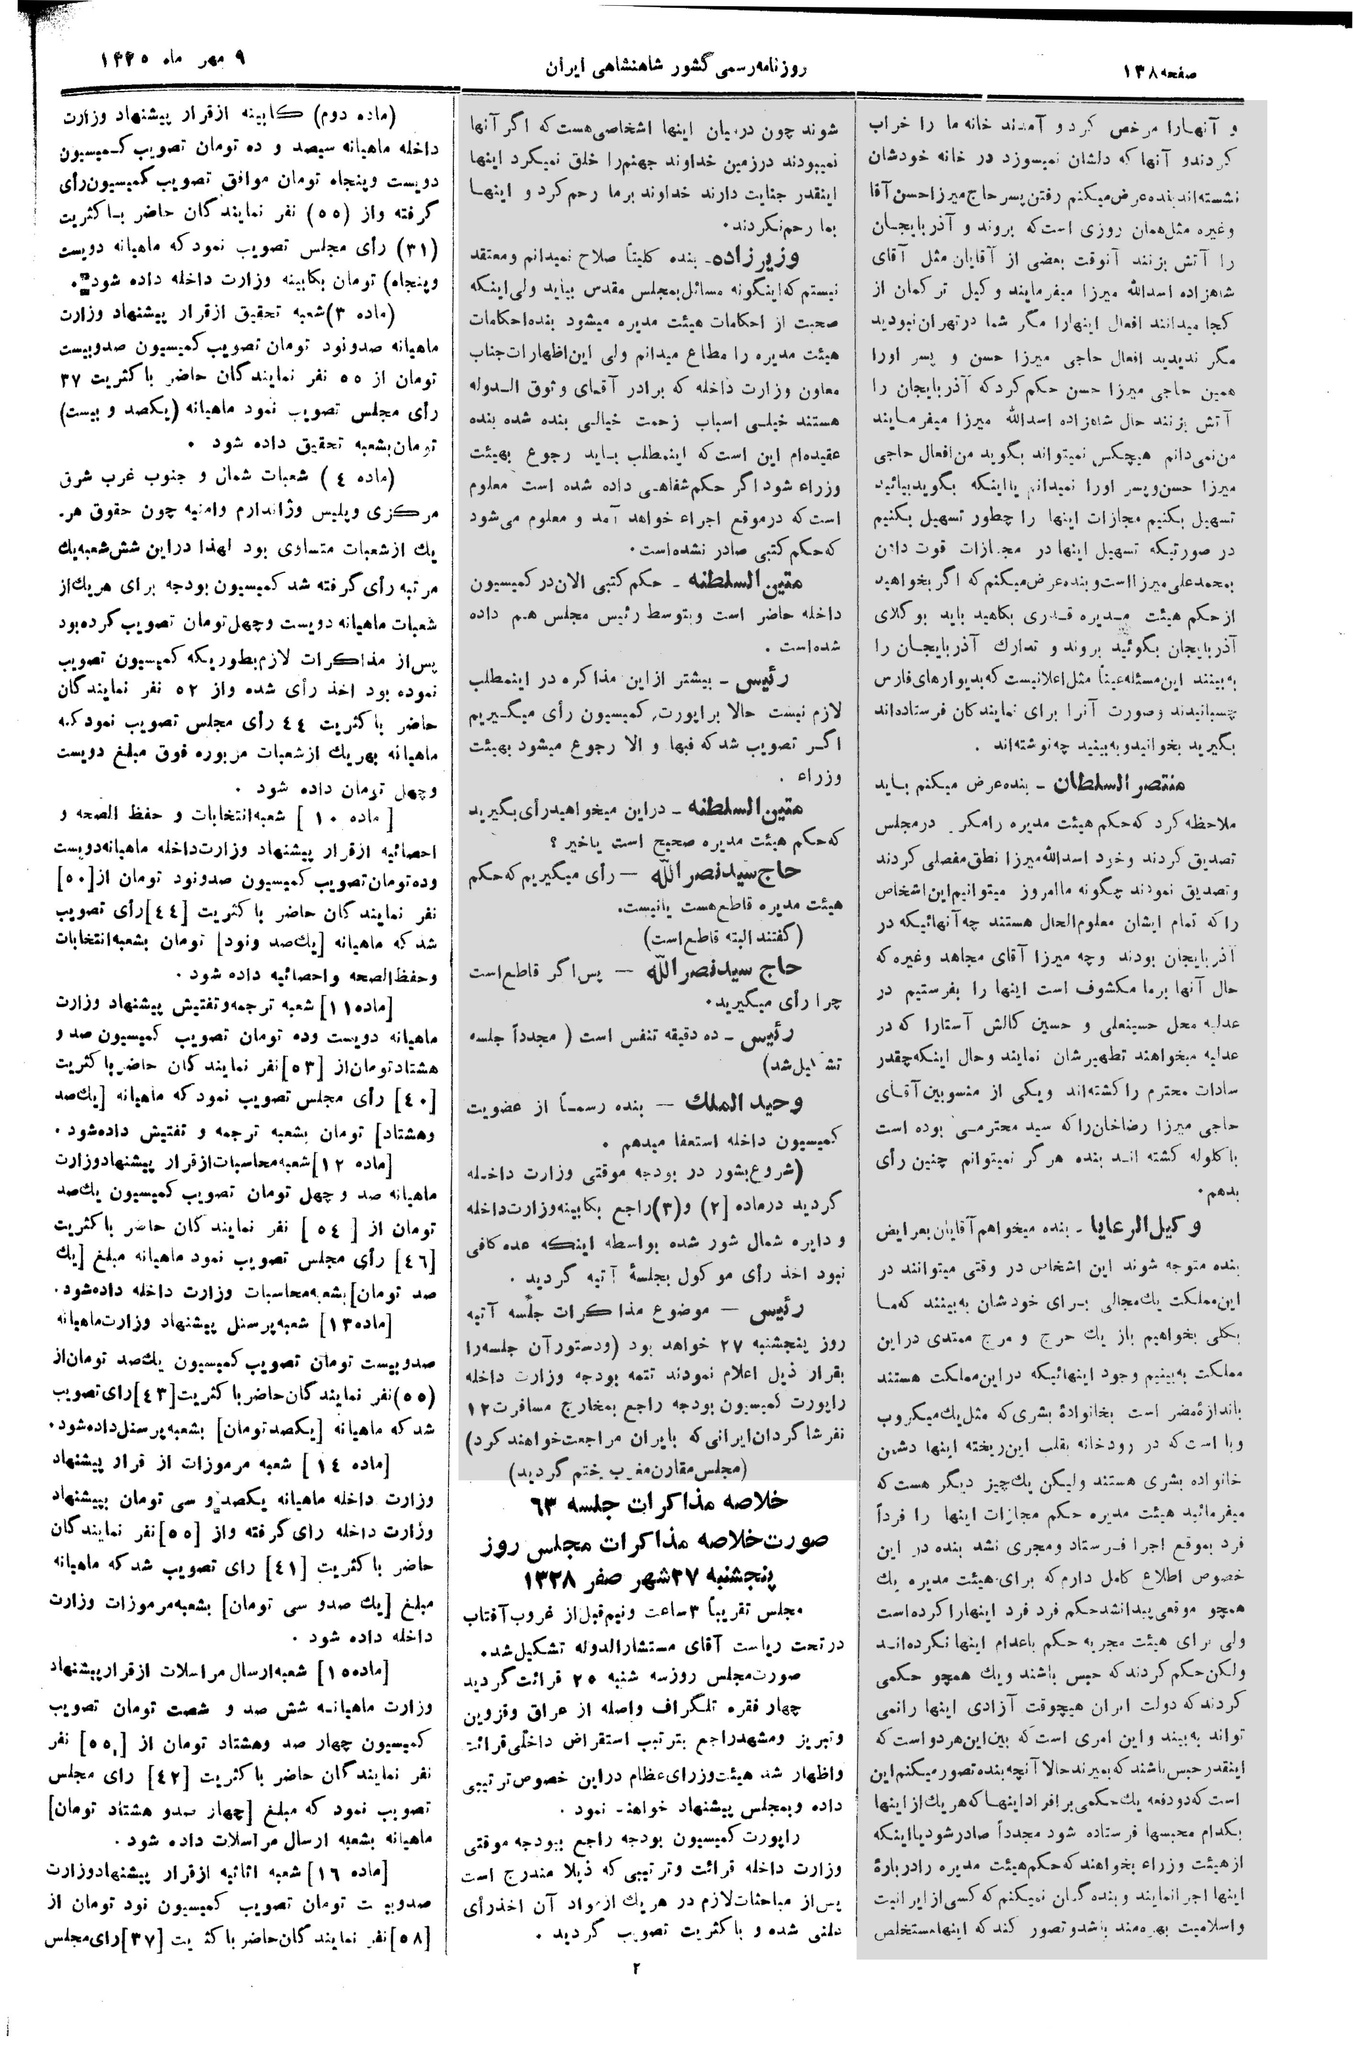 صفحه ۱۳۸
روزنامه رسمی کشور شاهنشاهی ایران
۹ مهر ماه ۱۳۲۵
و آنهارا مرخص کردو آمدند خانه ما را خراب
کردندو آنها که دلشان نمیسوزد در خانه خودشان
نشسته‌اند بنده عرض میکنم رفتن پسر حاج میرزا حسن آقا
وغیره مثل همان روزی است که بروند و آذربایجان
را آتش بزنند آنوقت بعضی از آقایان مثل آقای
شاهزاده اسدالله میرزا میفرمایند و کیل ترکمان از
کجا میدانند افعال اینهارا مگر شما در تهران نبودید
مگر ندیدید افعال حاجی میرزا حسن و پسر اورا
همین حاجی میرزا حسن حکم کرد که آذربایجان را
آتش بزنند حال شاهزاده اسدالله میرزا میفرمایند
من نمی‌دانم هیچکس نمیتواند بگوید من افعال حاجی
میرزا حسن و پسر اورا نمیدانم یا اینکه بگوید بیائید
تسهیل بکنیم مجازات اینها را چطور تسهیل بکنیم
در صورتیکه تسهیل اینها در مجازات قوت دادن
بمحمدعلی میرزا است و بنده عرض میکنم که اگر بخواهید
از حکم هیئت مدیره قدری بکاهید باید بوکلای
آذربایجان بگوئید بروند و تدارک آذربایجان را
به بینند این مسئله عیناً مثل اعلانیست که بدیوارهای فارس
چسبانیدند و صورت آنرا برای نمایندگان فرستاده‌اند
بگیرید بخوانید و به بینید چه نوشته‌اند .
منتصر السلطان ـ بنده عرض میکنم باید
ملاحظه کرد که حکم هیئت مدیره را مکرر در مجلس
تصدیق کردند و خود اسدالله میرزا نطق مفصلی کردند
و تصدیق نمودند چگونه ما امروز میتوانیم این اشخاص
را که تمام ایشان معلوم الحال هستند چه آنهائیکه در
آذربایجان بودند و چه میرزا آقای مجاهد وغیره که
حال آنها برما مکشوف است اینها را بفرستیم در
عدلیه محل حسینعلی و حسین کالش آستارا که در
عدلیه میخواهند تطهیرشان نمایند و حال اینکه چقدر
سادات محترم را کشته‌اند و یکی از منسوبین آقای
حاجی میرزا رضاخان را که سید محترمی بوده است
با گلوله کشته اند بنده هرگز نمیتوانم چنین رأی
بدهم .
وکیل الرعایا ـ بنده میخواهم آقایان بعرایض
بنده متوجه شوند این اشخاص در وقتی میتوانند در
این مملکت یک مجالی برای خودشان به بینند که ما
بکلی بخواهیم باز یک حرج و مرج ممتدی در این
مملکت به بینیم وجود اینهائیکه در این مملکت هستند
باندازهٔ مضر است بخانوادهٔ بشری که مثل یک میکروب
وبا است که در رودخانه بقلب این ریخته اینها دشمن
خانواده بشری هستند ولیکن یک چیز دیگر هست که
میفرمائید هیئت مدیره حکم مجازات اینها را فرداً
فرد بموقع اجرا فرستاد و مجری نشد بنده در این
خصوص اطلاع کامل دارم که برای هیئت مدیره یک
همچو موقعی پیدا نشد حکم فرد فرد اینها را کرده است
ولی برای هیئت مجریه حکم باعدام اینها نکرده‌اند
ولکن حکم کردند که حبس باشند و یک همچو حکمی
کردند که دولت ایران هیچوقت آزادی اینها را نمی
تواند به بیند و این امری است که بین این هر دو است که
اینقدر حبس باشند که بمیرند حالا آنچه بنده تصور میکنم این
است که دو دفعه یک حکمی بر افراد اینها که هر یک از اینها
بکدام محبسها فرستاده شود مجدداً صادر شود یا اینکه
از هیئت وزراء بخواهند که حکم هیئت مدیره را در بارهٔ
اینها اجرا نمایند و بنده گمان نمیکنم که کسی از ایرانیت
و اسلامیت بهره‌مند باشد و تصور کند که اینها مستخلص
شوند چون در میان اینها اشخاصی هست که اگر آنها
نمیبودند در زمین خداوند جهنم را خلق نمیکرد اینها
اینقدر جنایت دارند خداوند برما رحم کرد و اینها
بما رحم نکردند .
وزیرزاده ـ بنده کلیتاً صلاح نمیدانم و معتقد
نیستم که اینگونه مسائل بمجلس مقدس بیاید ولی اینکه
صحبت از احکامات هیئت مدیره میشود بنده احکامات
هیئت مدیره را مطاع میدانم ولی این اظهارات جناب
معاون وزارت داخله که برادر آقای وثوق الدوله
هستند خیلی اسباب زحمت خیالی بنده شده بنده
عقیده‌ام این است که اینمطلب باید رجوع بهیئت
وزراء شود اگر حکم شفاهی داده شده است معلوم
است که در موقع اجراء خواهد آمد و معلوم می‌شود
که حکم کتبی صادر نشده است .
متین السلطنه ـ حکم کتبی الان در کمیسیون
داخله حاضر است و بتوسط رئیس مجلس هم داده
شده است .
رئیس ـ بیشتر از این مذاکره در اینمطلب
لازم نیست حالا براپورت کمیسیون رأی میگیریم
اگر تصویب شد که فبها و الا رجوع میشود بهیئت
وزراء .
متین السلطنه ـ در این میخواهید رأی بگیرید
که حکم هیئت مدیره صحیح است یا خیر ؟
حاج سید نصر الله — رأی میگیریم که حکم
هیئت مدیره قاطع هست یا نیست.
(گفتند البته قاطع است)
حاج سید نصر الله — پس اگر قاطع است
چرا رأی میگیرید .
رئیس ـ ده دقیقه تنفس است ( مجدداً جلسه
تشکیل شد)
وحید الملک — بنده رسماً از عضویت
کمیسیون داخله استعفا میدهم .
(شروع بشور در بودجه موقتی وزارت داخله
گردید در ماده [۲) و(۳) راجع بکابینه وزارت داخله
و دایره شمال شور شده بواسطه اینکه عده کافی
نبود اخذ رأی موکول بجلسهٔ آتیه گردید .
رئیس — موضوع مذاکرات جلسه آتیه
روز پنجشنبه ۲۷ خواهد بود (و دستور آن جلسه را
بقرار ذیل اعلام نمودند تتمه بودجه وزارت داخله
راپورت کمیسیون بودجه راجع بمخارج مسافرت ۱۲
نفر شاگردان ایرانی که بایران مراجعت خواهند کرد)
(مجلس مقارن مغرب ختم گردید)
خلاصه مذاکرات جلسه ۶۳
صورت خلاصه مذاکرات مجلس روز
پنجشنبه ۲۷ شهر صفر ۱۳۲۸
مجلس تقریباً ۳ ساعت و نیم قبل از غروب آفتاب
در تحت ریاست آقای مستشارالدوله تشکیل شد .
صورت مجلس روز سه شنبه ۲۵ قرائت گردید
چهار فقره تلگراف واصله از عراق و قزوین
و تبریز و مشهد راجع بترتیب استقراض داخلی قرائت
و اظهار شد هیئت وزرای عظام در این خصوص ترتیبی
داده و بمجلس پیشنهاد خواهند نمود .
راپورت کمیسیون بودجه راجع ببودجه موقتی
وزارت داخله قرائت و ترتیبی که ذیلا مندرج است
پس از مباحثات لازم در هر یک از مواد آن اخذ رأی
علنی شده و با کثریت تصویب گردید .
(ماده دوم) کابینه از قرار پیشنهاد وزارت
داخله ماهیانه سیصد و ده تومان تصویب کمیسیون
دویست و پنجاه تومان موافق تصویب کمیسیون رأی
گرفته و از (۵۵) نفر نمایندگان حاضر با کثریت
(۳۱) رأی مجلس تصویب نمود که ماهیانه دویست
و پنجاه) تومان بکابینه وزارت داخله داده شود .
(ماده ۳) شعبه تحقیق از قرار پیشنهاد وزارت
ماهیانه صدو نود تومان تصویب کمیسیون صدو بیست
تومان از ۵۵ نفر نمایندگان حاضر با کثریت ۳۷
رأی مجلس تصویب نمود ماهیانه (یکصد و بیست)
تومان بشعبه تحقیق داده شود .
(ماده ۴ ) شعبات شمال و جنوب غرب شرق
مرکزی و پلیس و ژاندارم و امنیه چون حقوق هر
یک از شعبات متساوی بود لهذا در این شش شعبه یک
مرتبه رأی گرفته شد کمیسیون بودجه برای هر یک از
شعبات ماهیانه دویست و چهل تومان تصویب کرده بود
پس از مذاکرات لازم بطوریکه کمیسیون تصویب
نموده بود اخذ رأی شده و از ۵۲ نفر نمایندگان
حاضر با کثریت ۴۴ رأی مجلس تصویب نمود که
ماهیانه بهر یک از شعبات مزبوره فوق مبلغ دویست
و چهل تومان داده شود .
[ ماده ۱۰ ] شعبه انتخابات و حفظ الصحه و
احصائیه از قرار پیشنهاد وزارت داخله ماهیانه دویست
و ده تومان تصویب کمیسیون صدو نود تومان از [۵۰]
نفر نمایندگان حاضر با کثریت [۴۴] رأی تصویب
شد که ماهیانه [یک صد و نود] تومان بشعبه انتخابات
و حفظ الصحه و احصائیه داده شود .
[ماده ۱۱] شعبه ترجمه و تفتیش پیشنهاد وزارت
ماهیانه دویست و ده تومان تصویب کمیسیون صد و
هشتاد تومان از [۵۳] نفر نمایندگان حاضر با کثریت
[۴۰] رأی مجلس تصویب نمود که ماهیانه [یک صد
و هشتاد] تومان بشعبه ترجمه و تفتیش داده شود .
[ماده ۱۲] شعبه محاسبات از قرار پیشنهاد وزارت
ماهیانه صد و چهل تومان تصویب کمیسیون یک صد
تومان از [ ۵۴ ] نفر نمایندگان حاضر با کثریت
[۴۶] رأی مجلس تصویب نمود ماهیانه مبلغ [یک
صد تومان] بشعبه محاسبات وزارت داخله داده شود .
[ماده ۱۳] شعبه پرسنل پیشنهاد وزارت ماهیانه
صدو بیست تومان تصویب کمیسیون یک صد تومان از
(۵۵) نفر نمایندگان حاضر با کثریت [۴۳] رای تصویب
شد که ماهیانه [یکصد تومان] بشعبه پرسنل داده شود .
[ماده ۱۴] شعبه مرموزات از قرار پیشنهاد
وزارت داخله ماهیانه یکصد و سی تومان پیشنهاد
وزارت داخله رای گرفته و از [۵۵] نفر نمایندگان
حاضر با کثریت [۴۱] رای تصویب شد که ماهیانه
مبلغ [یک صدو سی تومان] بشعبه مرموزات وزارت
داخله داده شود .
[ماده ۱۵] شعبه ارسال مراسلات از قرار پیشنهاد
وزارت ماهیانه شش صد و شصت تومان تصویب
کمیسیون چهار صد و هشتاد تومان از [۵۵] نفر
نفر نمایندگان حاضر با کثریت [۴۲] رای مجلس
تصویب نمود که مبلغ [چهار صدو هشتاد تومان]
ماهیانه بشعبه ارسال مراسلات داده شود .
[ماده ۱۶] شعبه اثاثیه از قرار پیشنهاد وزارت
صدو بیست تومان تصویب کمیسیون نود تومان از
[۵۸] نفر نمایندگان حاضر با کثریت [۳۷] رای مجلس
۲